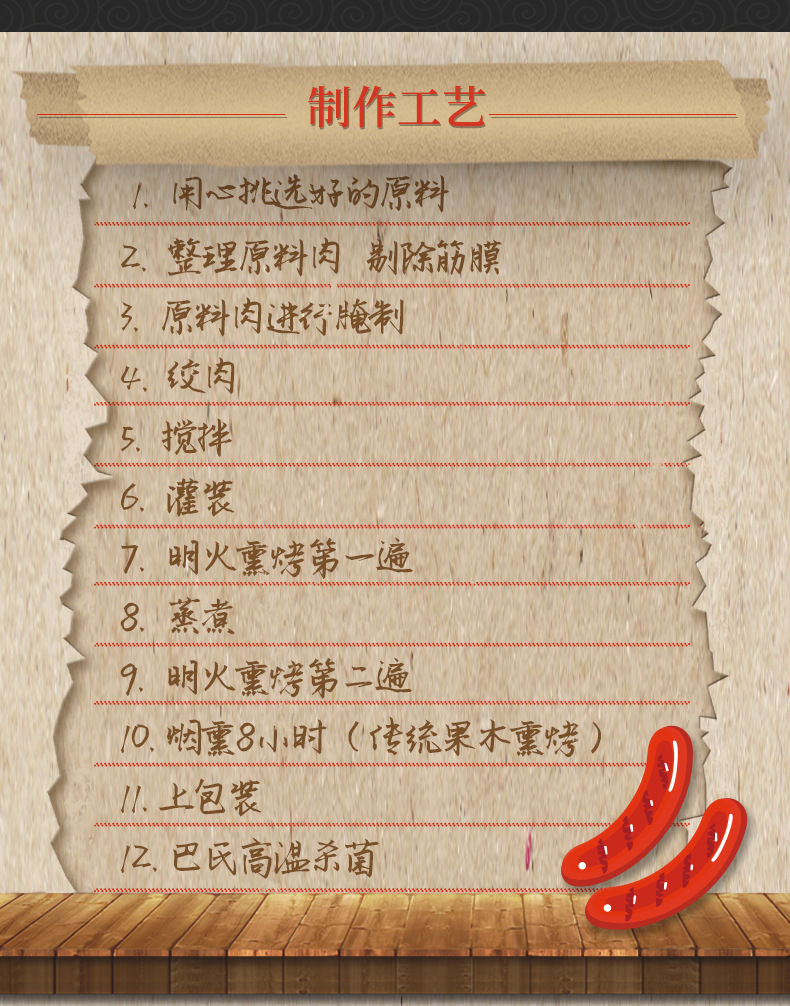 制作工艺
1. 用心挑选好的原料
2. 整理原料肉 剔除筋膜
3. 原料肉进行腌制
4. 绞肉
5. 搅拌
6. 灌装
7. 明火熏烤第一遍
8. 蒸煮
9. 明火熏烤第二遍
10. 烟熏8小时（传统果木熏烤）
11. 上包装
12. 巴氏高温杀菌